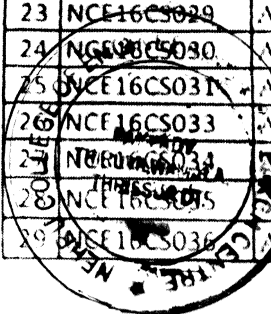 23 NCE16CS029
24 NCE16CS030
25 NCE16CS031
26 NCE16CS033
27 NCE16CS034
28 NCE16CS035
29 NCE16CS036
COLLEGE OF
CENTRE
THRISSUR DT